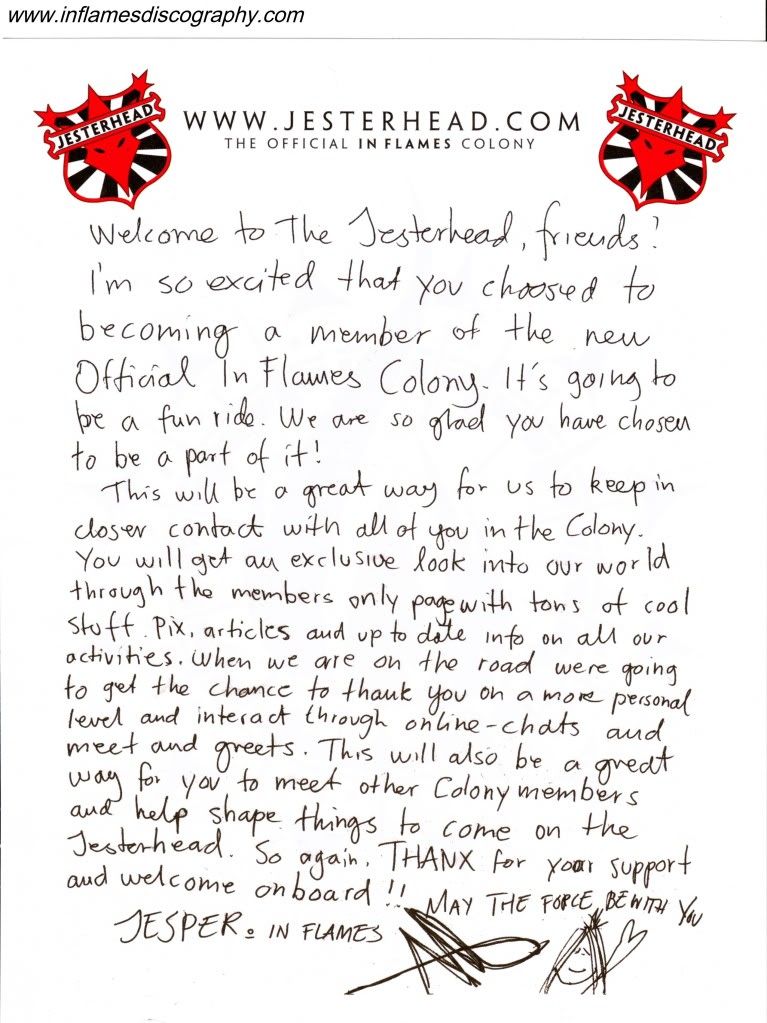 www.inflamesdiscography.com
JESTERHEAD
WWW.JESTERHEAD.COM
JESTERHEAD
THE OFFICIAL IN FLAMES COLONY
Welcome to The Jesterhead, friends!
I'm so excited that you choosed to
becoming a member of the new
Official In Flames Colony. It's going to
be a fun ride. We are so glad you have chosen
to be a part of it!
This will be a great way for us to keep in
closer contact with all of you in the Colony.
You will get an exclusive look into our world
through the members only page with tons of cool
stuff. Pix, articles and up to date info on all our
activities. When we are on the road were going
to get the chance to thank you on a more personal
level and interact through online-chats and
meet and greets. This will also be a great
way for you to meet other Colony members
and help shape things to come on the
Jesterhead. So again, THANX for your support
and welcome onboard!!
MAY THE FORCE BE WITH YOU
JESPER: IN FLAMES